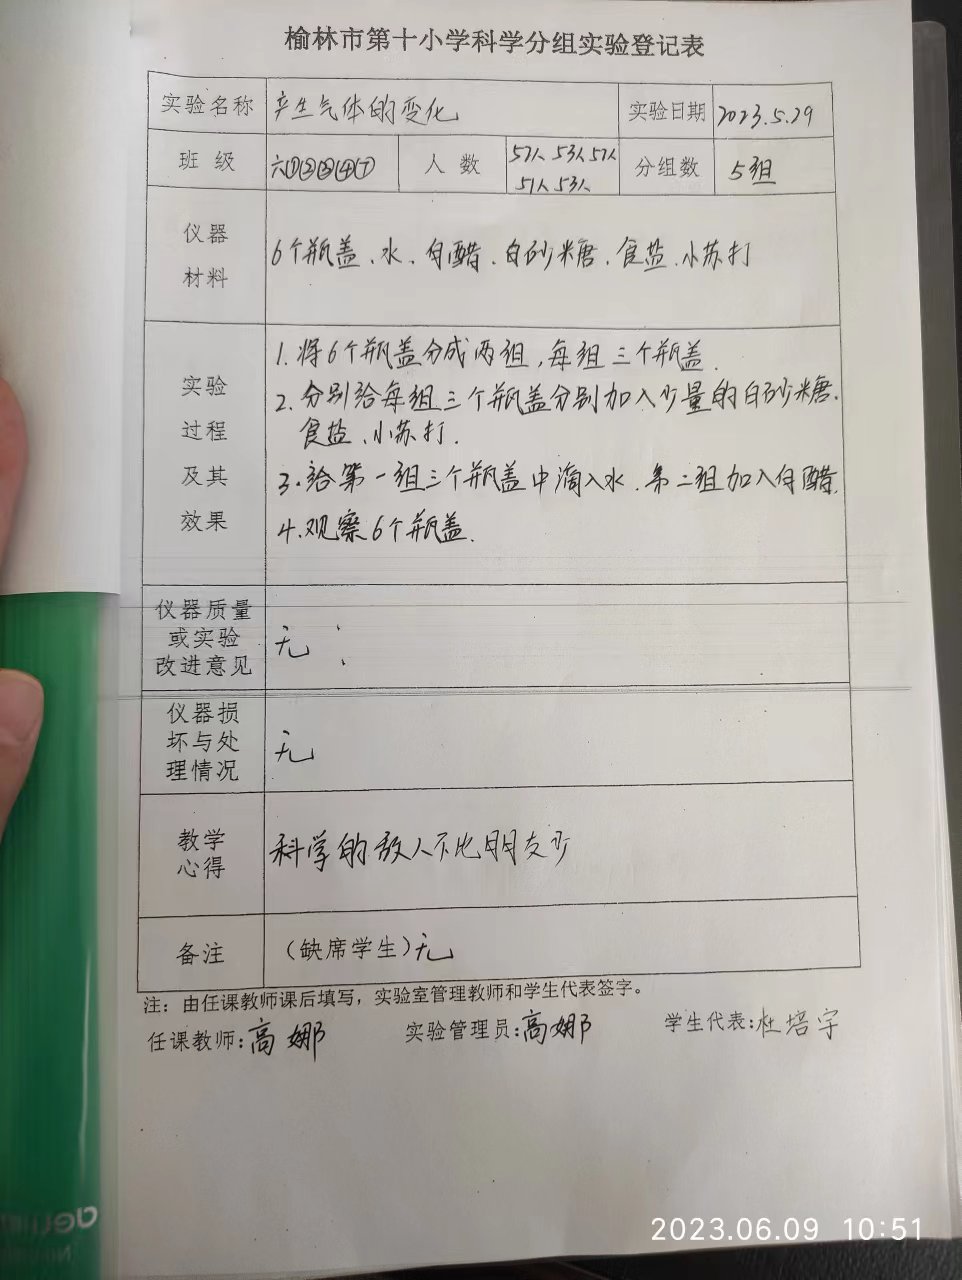 榆林市第十小学科学分组实验登记表
实验名称 产生气体的变化 实验日期 2023.5.29
班 级 六①②③④⑦ 人 数 57人 53人 57人 分组数 5组
51人 53人
仪器
材料
6个瓶盖、水、白醋、白砂糖、食盐、小苏打
实验
过程
及其
效果
1.将6个瓶盖分成两组,每组三个瓶盖.
2.分别给每组三个瓶盖分别加入少量的白砂糖.
食盐、小苏打.
3.给第一组三个瓶盖中滴入水.第二组加入白醋.
4.观察6个瓶盖.
仪器质量
或实验
改进意见
无
仪器损
坏与处
理情况
无
教学
心得
科学的敌人不比朋友少
备注 (缺席学生)无
注：由任课教师课后填写，实验室管理教师和学生代表签字。
任课教师:高娜 实验管理员:高娜 学生代表:杜培宇
deli
2023.06.09 10:51